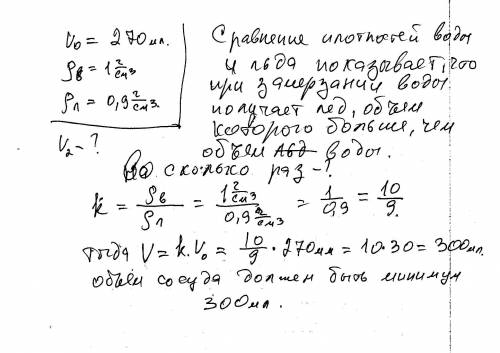 V₀ = 270 мл.
ρв = 1 г/см³
ρл = 0,9 г/см³
V₂ - ?
Сравнение плотностей воды
и льда показывает, что
при замерзании воды
получает лед, объем
которого больше, чем
объем воды.
Во сколько раз - ?
k = ρв/ρл = 1 г/см³ / 0,9 г/см³ = 1/0,9 = 10/9.
тогда V = k·V₀ = 10/9 · 270мл = 10·30 = 300мл.
объем сосуда должен быть минимум
300мл.